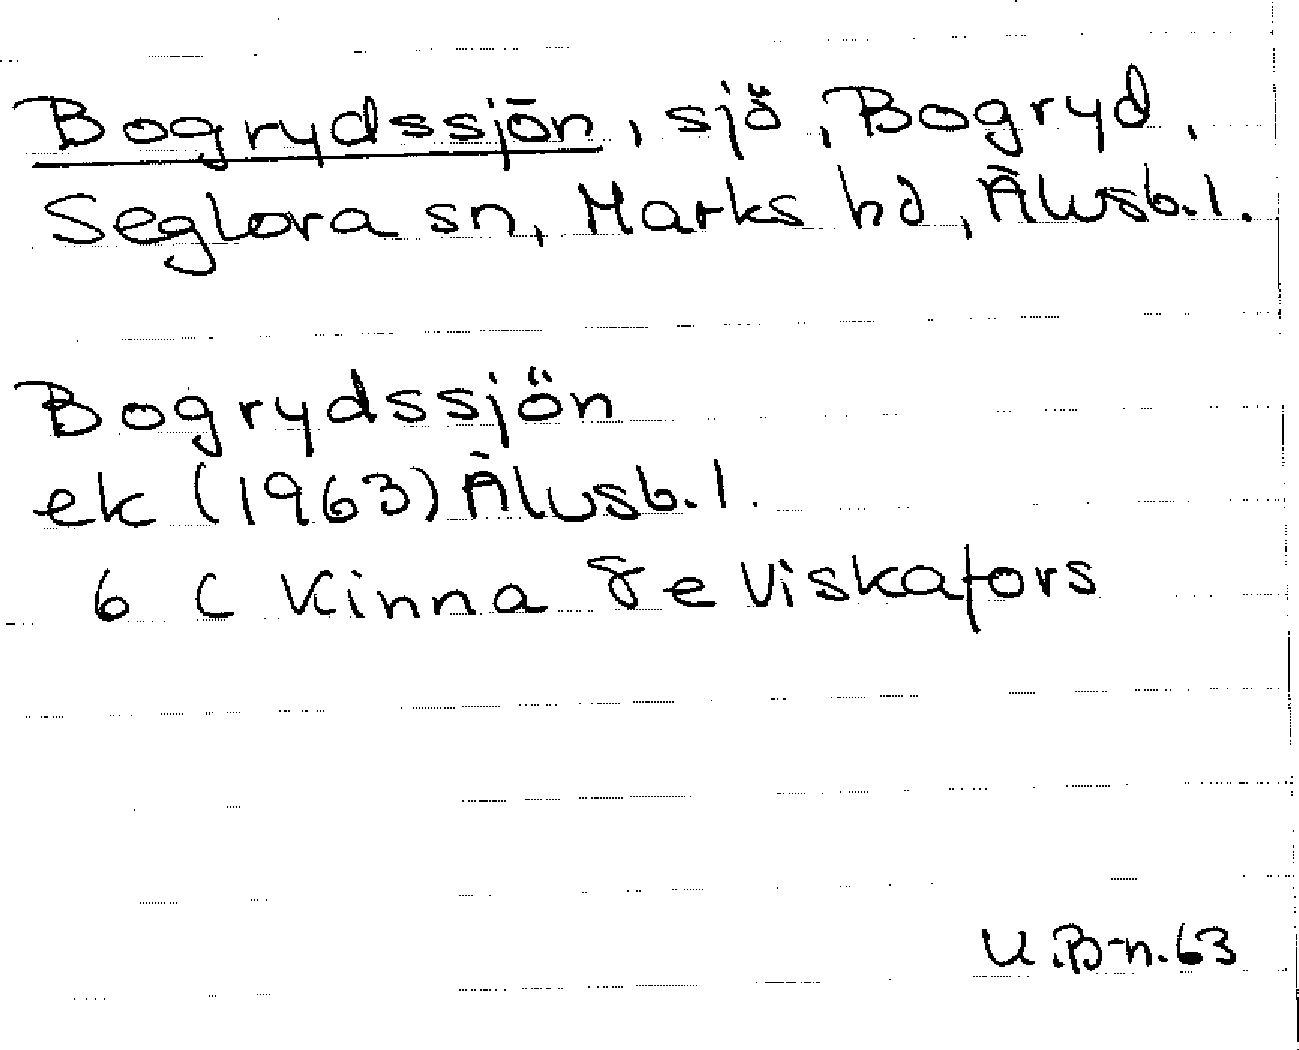 Bogrydssjön, sjö, Bogryd,
Seglora sn, Marks hd, Älvsb.l.
Bogrydssjön
ek (1963) Älvsb.l.
6 C Kinna 8e Viskafors
U.B-n.63